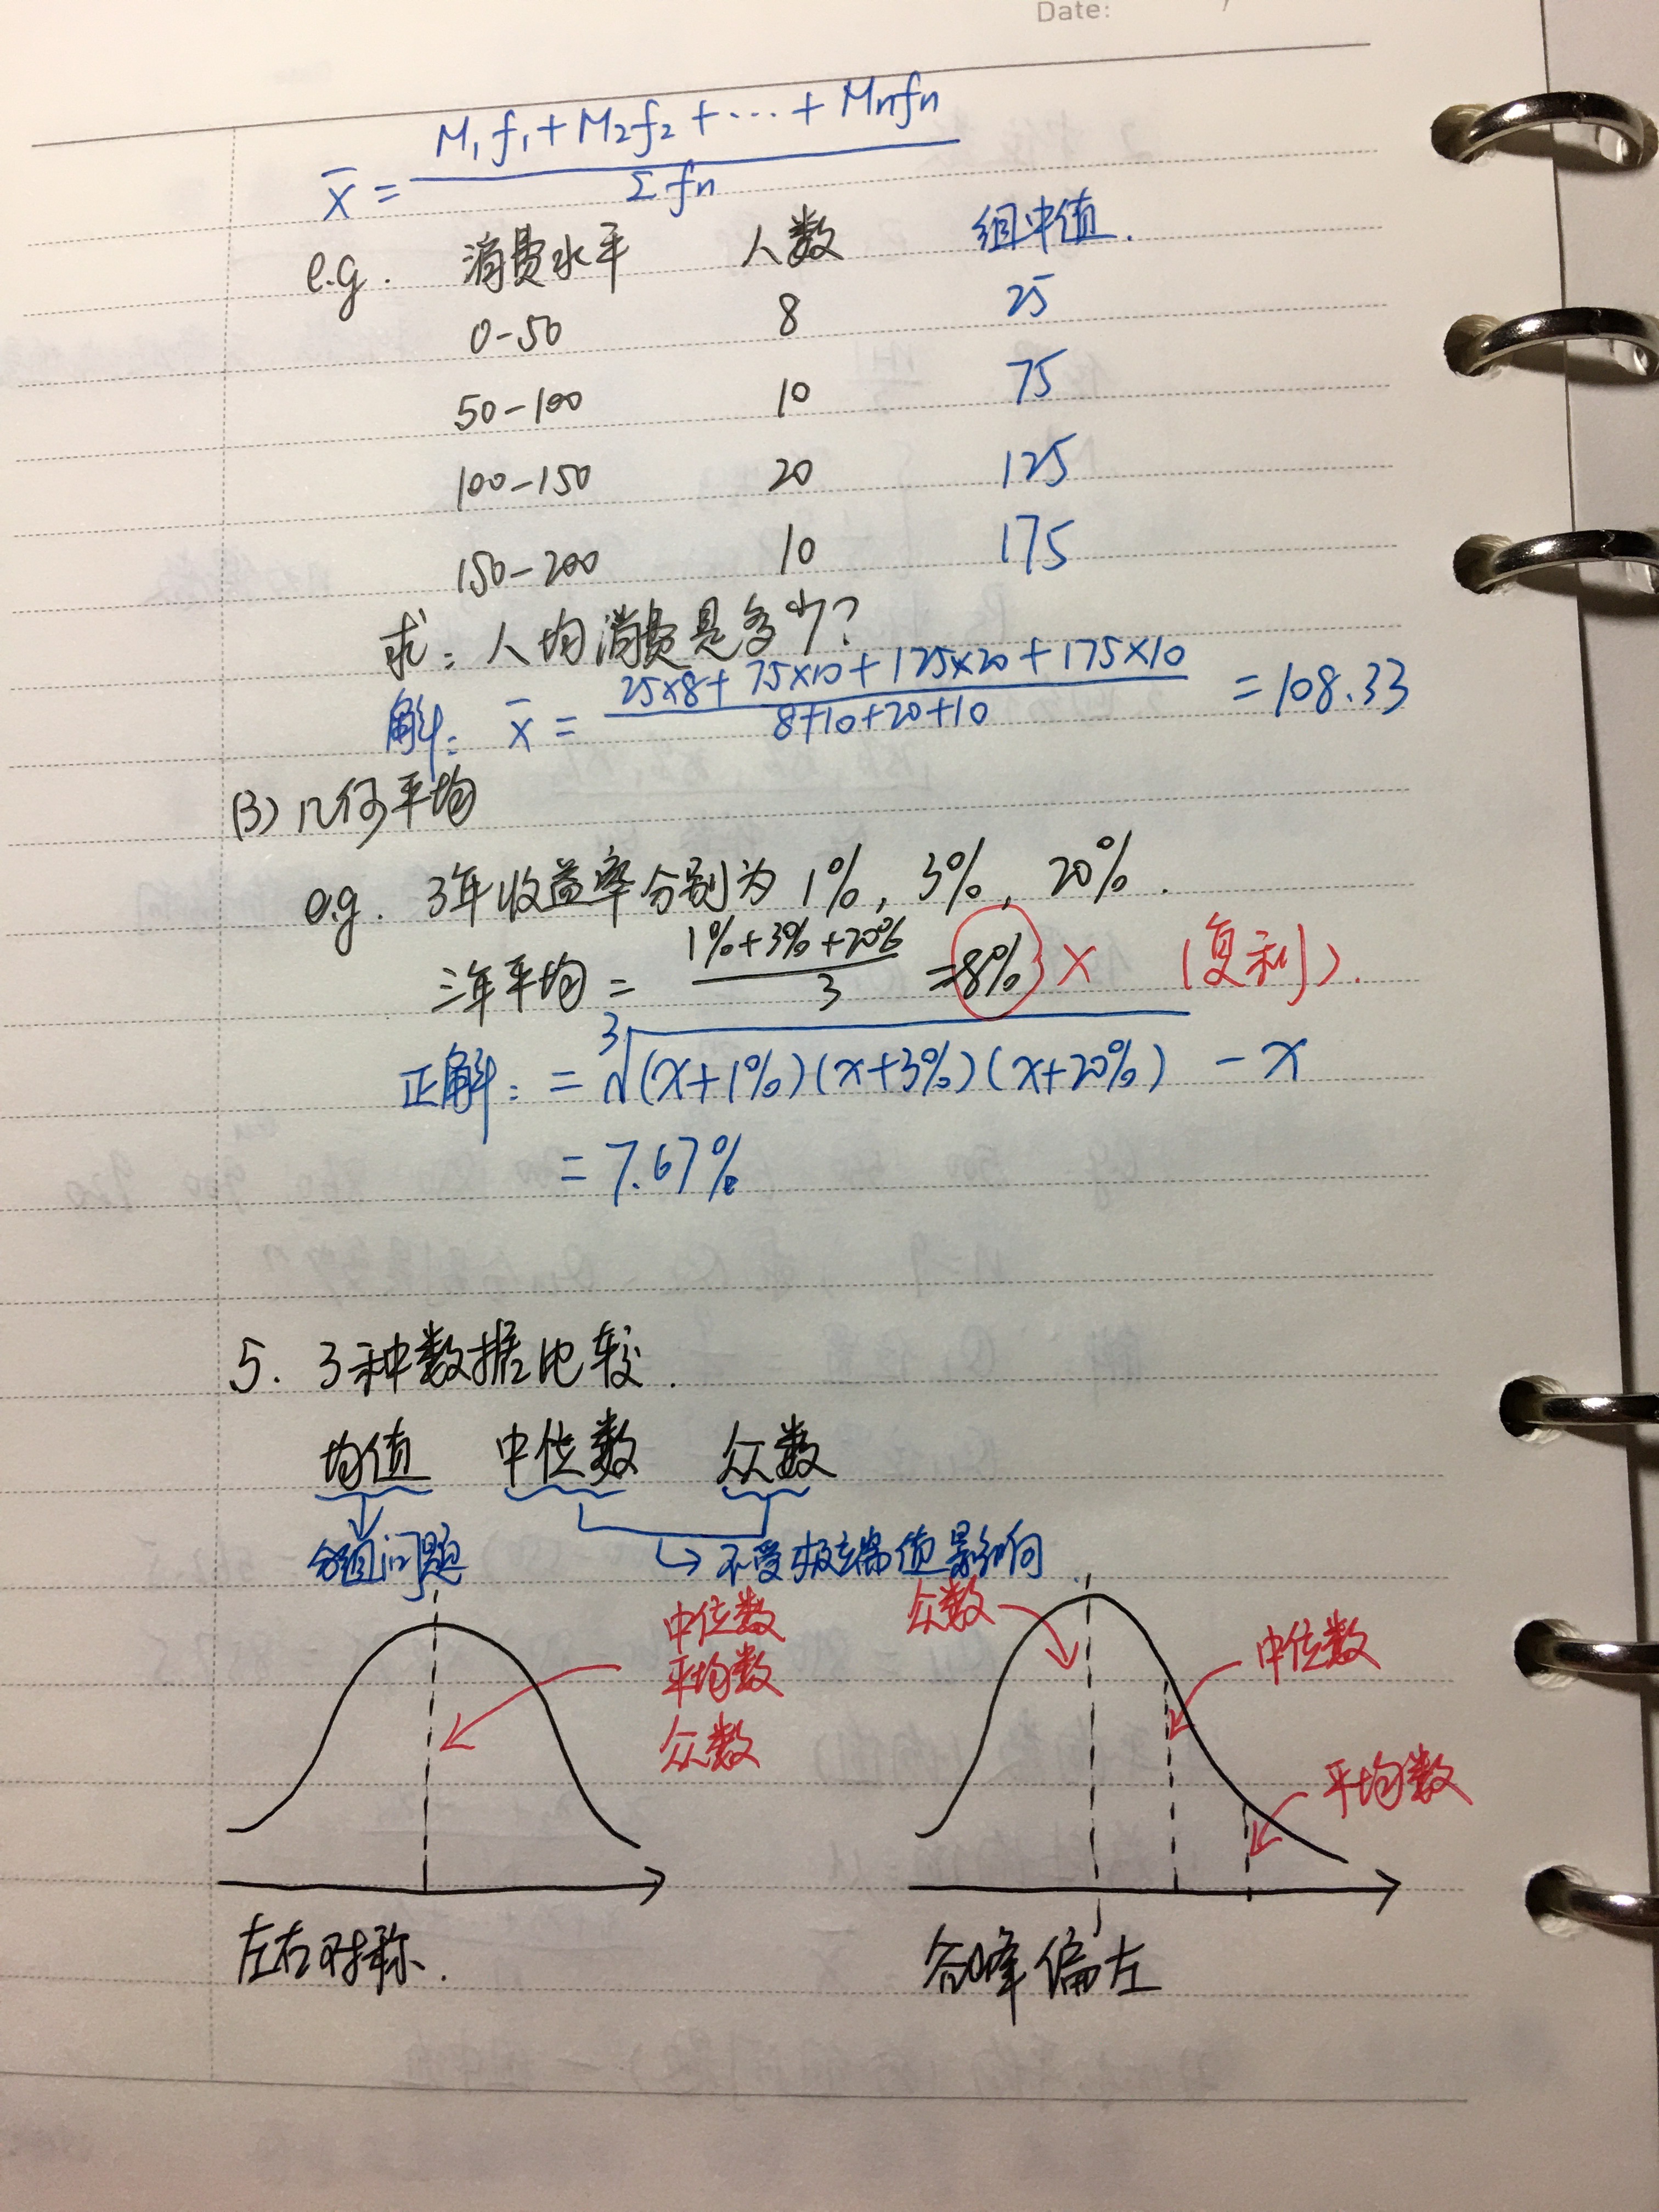 Date:
x̄ = (M₁f₁ + M₂f₂ + ... + Mnfn) / Σfn
e.g. 消费水平 人数 组中值.
0-50 8 25
50-100 10 75
100-150 20 125
150-200 10 175
求: 人均消费是多少?
解: x̄ = (25×8 + 75×10 + 125×20 + 175×10) / (8+10+20+10) = 108.33
(3) 几何平均
e.g. 3年收益率分别为 1%, 3%, 20%.
三年平均 = (1%+3%+20%) / 3 = 8% × (复利).
正解: = ³√(x+1%)(x+3%)(x+20%) - x
= 7.67%
5. 3种数据比较.
均值 中位数 众数
分组问题 → 不受极端值影响
中位数
平均数
众数
众数
中位数
平均数
左右对称.
高峰偏左